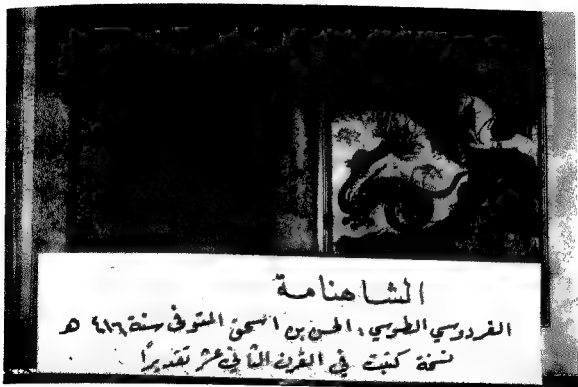 الشاهنامة
الفردوسي الطوسي، الحسن بن اسحق المتوفى سنة ٤١٦ هـ
نسخة كتبت في القرن الثاني عشر تقديرًا